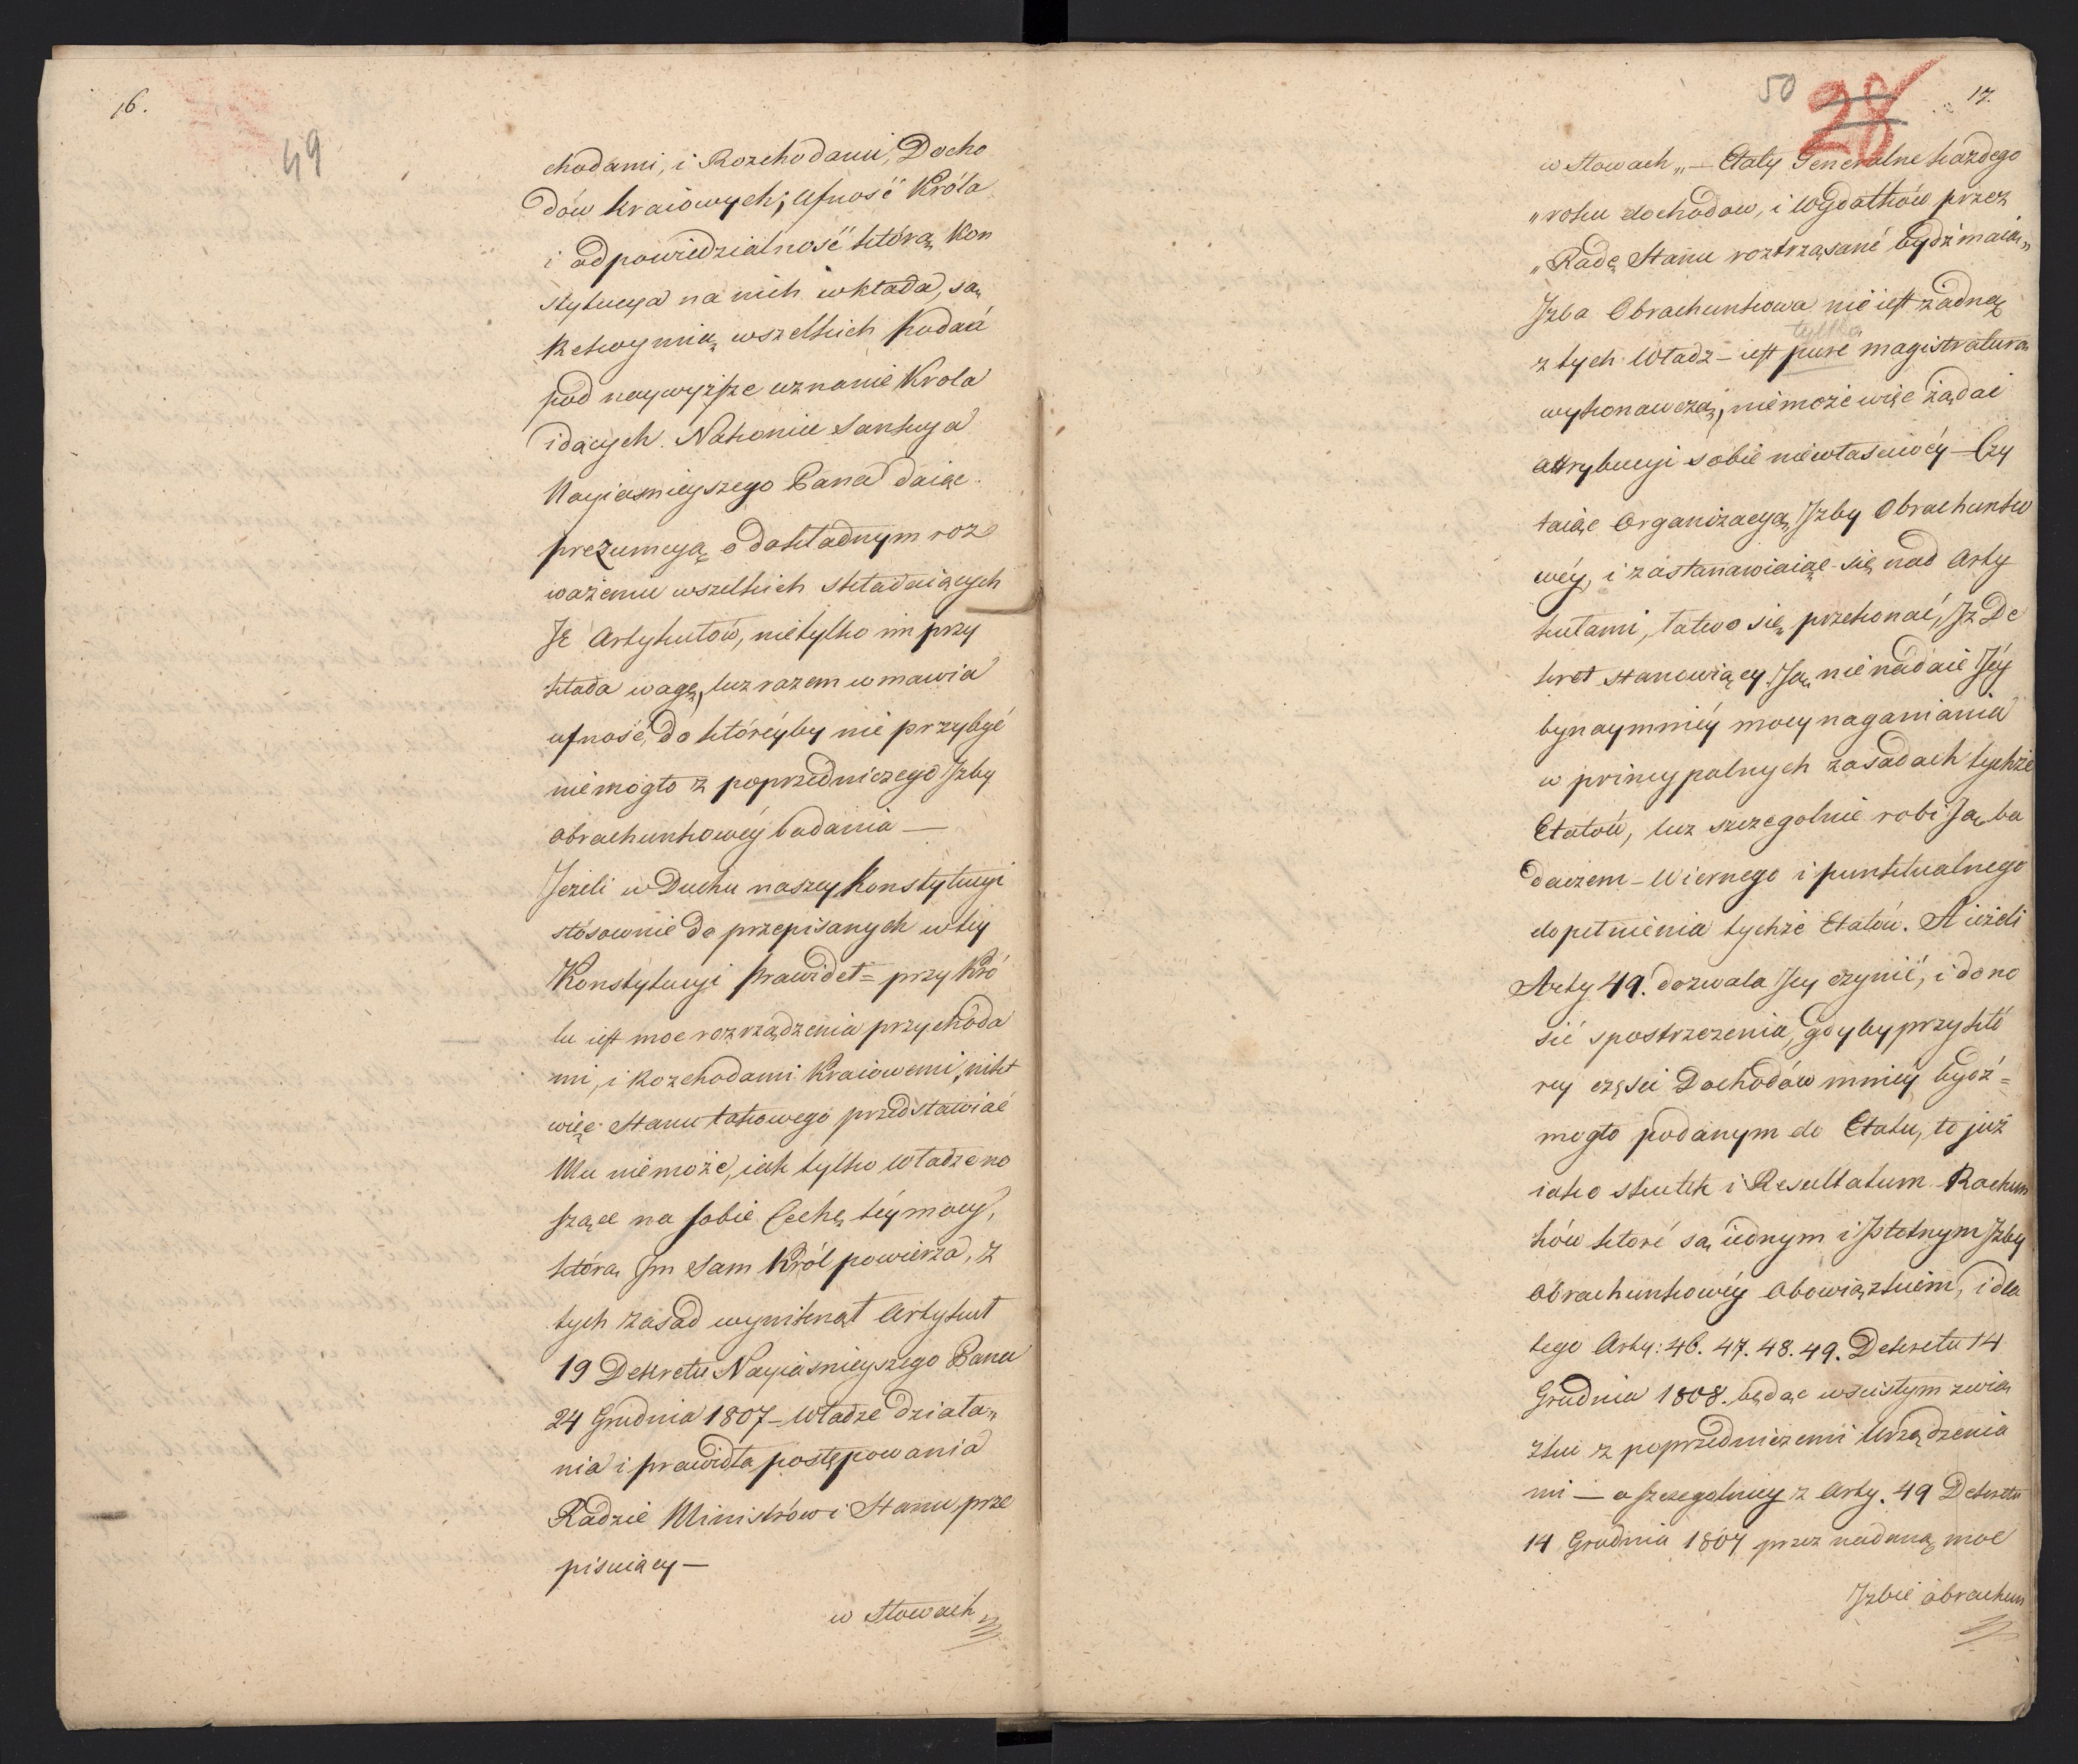 16.
49
chodami, i Rozchodami, Docho
dów kraiowych; Ufność Króla
i odpowiedzialność którą Kon
stytucya na nich wkłada, są
Rękoymią wszelkich podań
pod naywyższe uznanie Krola
idących. Nakoniec Sankcya
Nayiasnieyszego Pana daiąc
prezumcyą o dokładnym roz
ważeniu wszelkich składaiących
Je Artykułów, nietylko im przy
kłada wagę, lecz razem wmawia
ufność, do któréyby nie przybyć
niemogło z poprzedniczego Izby
obrachunkowéy badania —
Jeżeli w Duchu naszey Konstytucyi
stósownie do przepisanych w téy
Konstytucyi prawideł = przy Kró
lu iest moc rozrządzenia przychoda
mi, i Rozchodami Kraiowemi, nikt
więc Stanu takowego przedstawiać
Mu niemoże, iak tylko Władze no
szące na sobie Cechę téy mocy,
którą Im Sam Król powierza, z
tych zasad wyniknął Artykuł
19 Dekretu Nayiaśnieyszego Pana
24 Grudnia 1807 — Władze działa„
nia i prawidła postępowania
Radzie Ministrów i Stanu prze
pisuiący —
w Słowach
50
28
17.
w Słowach „— Etaty Generalne każdego
„roku dochodow, i Wydatków przez
„Radę Stanu roztrząsané bydź maią„
Izba Obrachunkowa nie iest żadną
tylko
z tych Władz — iest puré magistraturą
wykonawczą, niemoże więc żądać
attrybucyi sobie niewłaściwéy — Czy
taiąc Organizacyą Izby Obrachunko
wéy, i zastanawiaiąc się nad Arty
kułami, łatwo się przekonać, Iz De
kret stanowiący Ją, nie nadaie Jéy
bynaymniéy mocy naganiania
w pryncypalnych zasadach tychże
Etatów, lecz szczegolnie robi Ją ba
daczem — Wiernego i punktualnego
dopełnienia tychże Etatów. A ieżeli
Arty 49. dozwala Jey czynić, i dono
sić spostrzezenia, gdyby przy któ
rey części Dochodów mniéy bydź =
mogło podanym do Etatu, to już
iako skutek i Resultatum Rachun
ków ktoré są iednym i Istotnym Izby
Obrachunkowéy Obowiązkiem, i dla
tego Arty: 46. 47. 48. 49. Dekretu 14
Grudnia 1808. będąc w scisłym zwią
zku z poprzedniczemi Urządzenia
mi — a szczegolniey z Arty. 49 Dekretu
14 Grudnia 1807 przez nadaną moc
Izbie obrachun